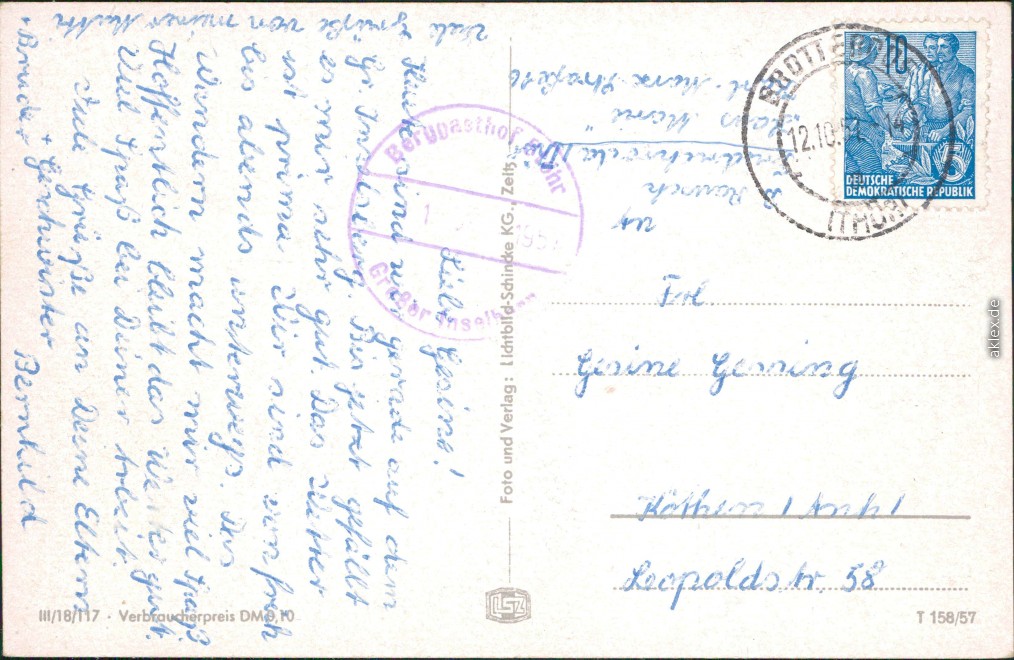 Liebe Gesine!
Heute sind wir gerade auf dem
Gr. Inselsberg. Bis jetzt gefällt
es mir sehr gut. Das Wetter
ist prima. Wir sind von früh
bis abends unterwegs. Das
Wandern macht mir viel Spaß.
Hoffentlich bleibt das Wetter gut.
Viel Spaß bei Deiner Arbeit.
Viele Grüße an Deine Eltern
+ Geschwister Bernhild
Viele Grüße von meiner Mutti
+ Bruder
Berggasthof
Großer Inselsberg
1957
Foto und Verlag: Lichtbild-Schincke KG., Zeitz
BROTTERODE
12.10.57
(THÜR)
10
5
DEUTSCHE
DEMOKRATISCHE REPUBLIK
Frl
Gesine Gensing
Köthen / Anh /
Leopoldstr. 58
III/18/117 · Verbraucherpreis DM 0,10
LSZ
T 158/57
aklex.de